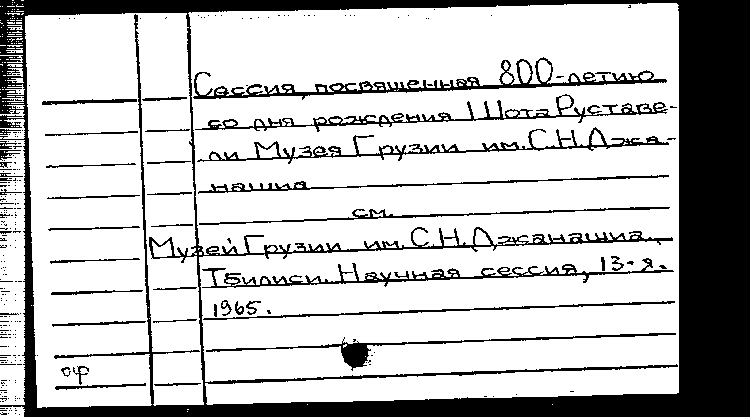 Сессия, посвященная 800-летию
со дня рождения Шота Руставе-
ли Музея Грузии им. С.Н. Джа-
нашиа
см.
Музей Грузии им. С.Н. Джанашиа,
Тбилиси. Научная сессия, 13-я.
1965.
оф